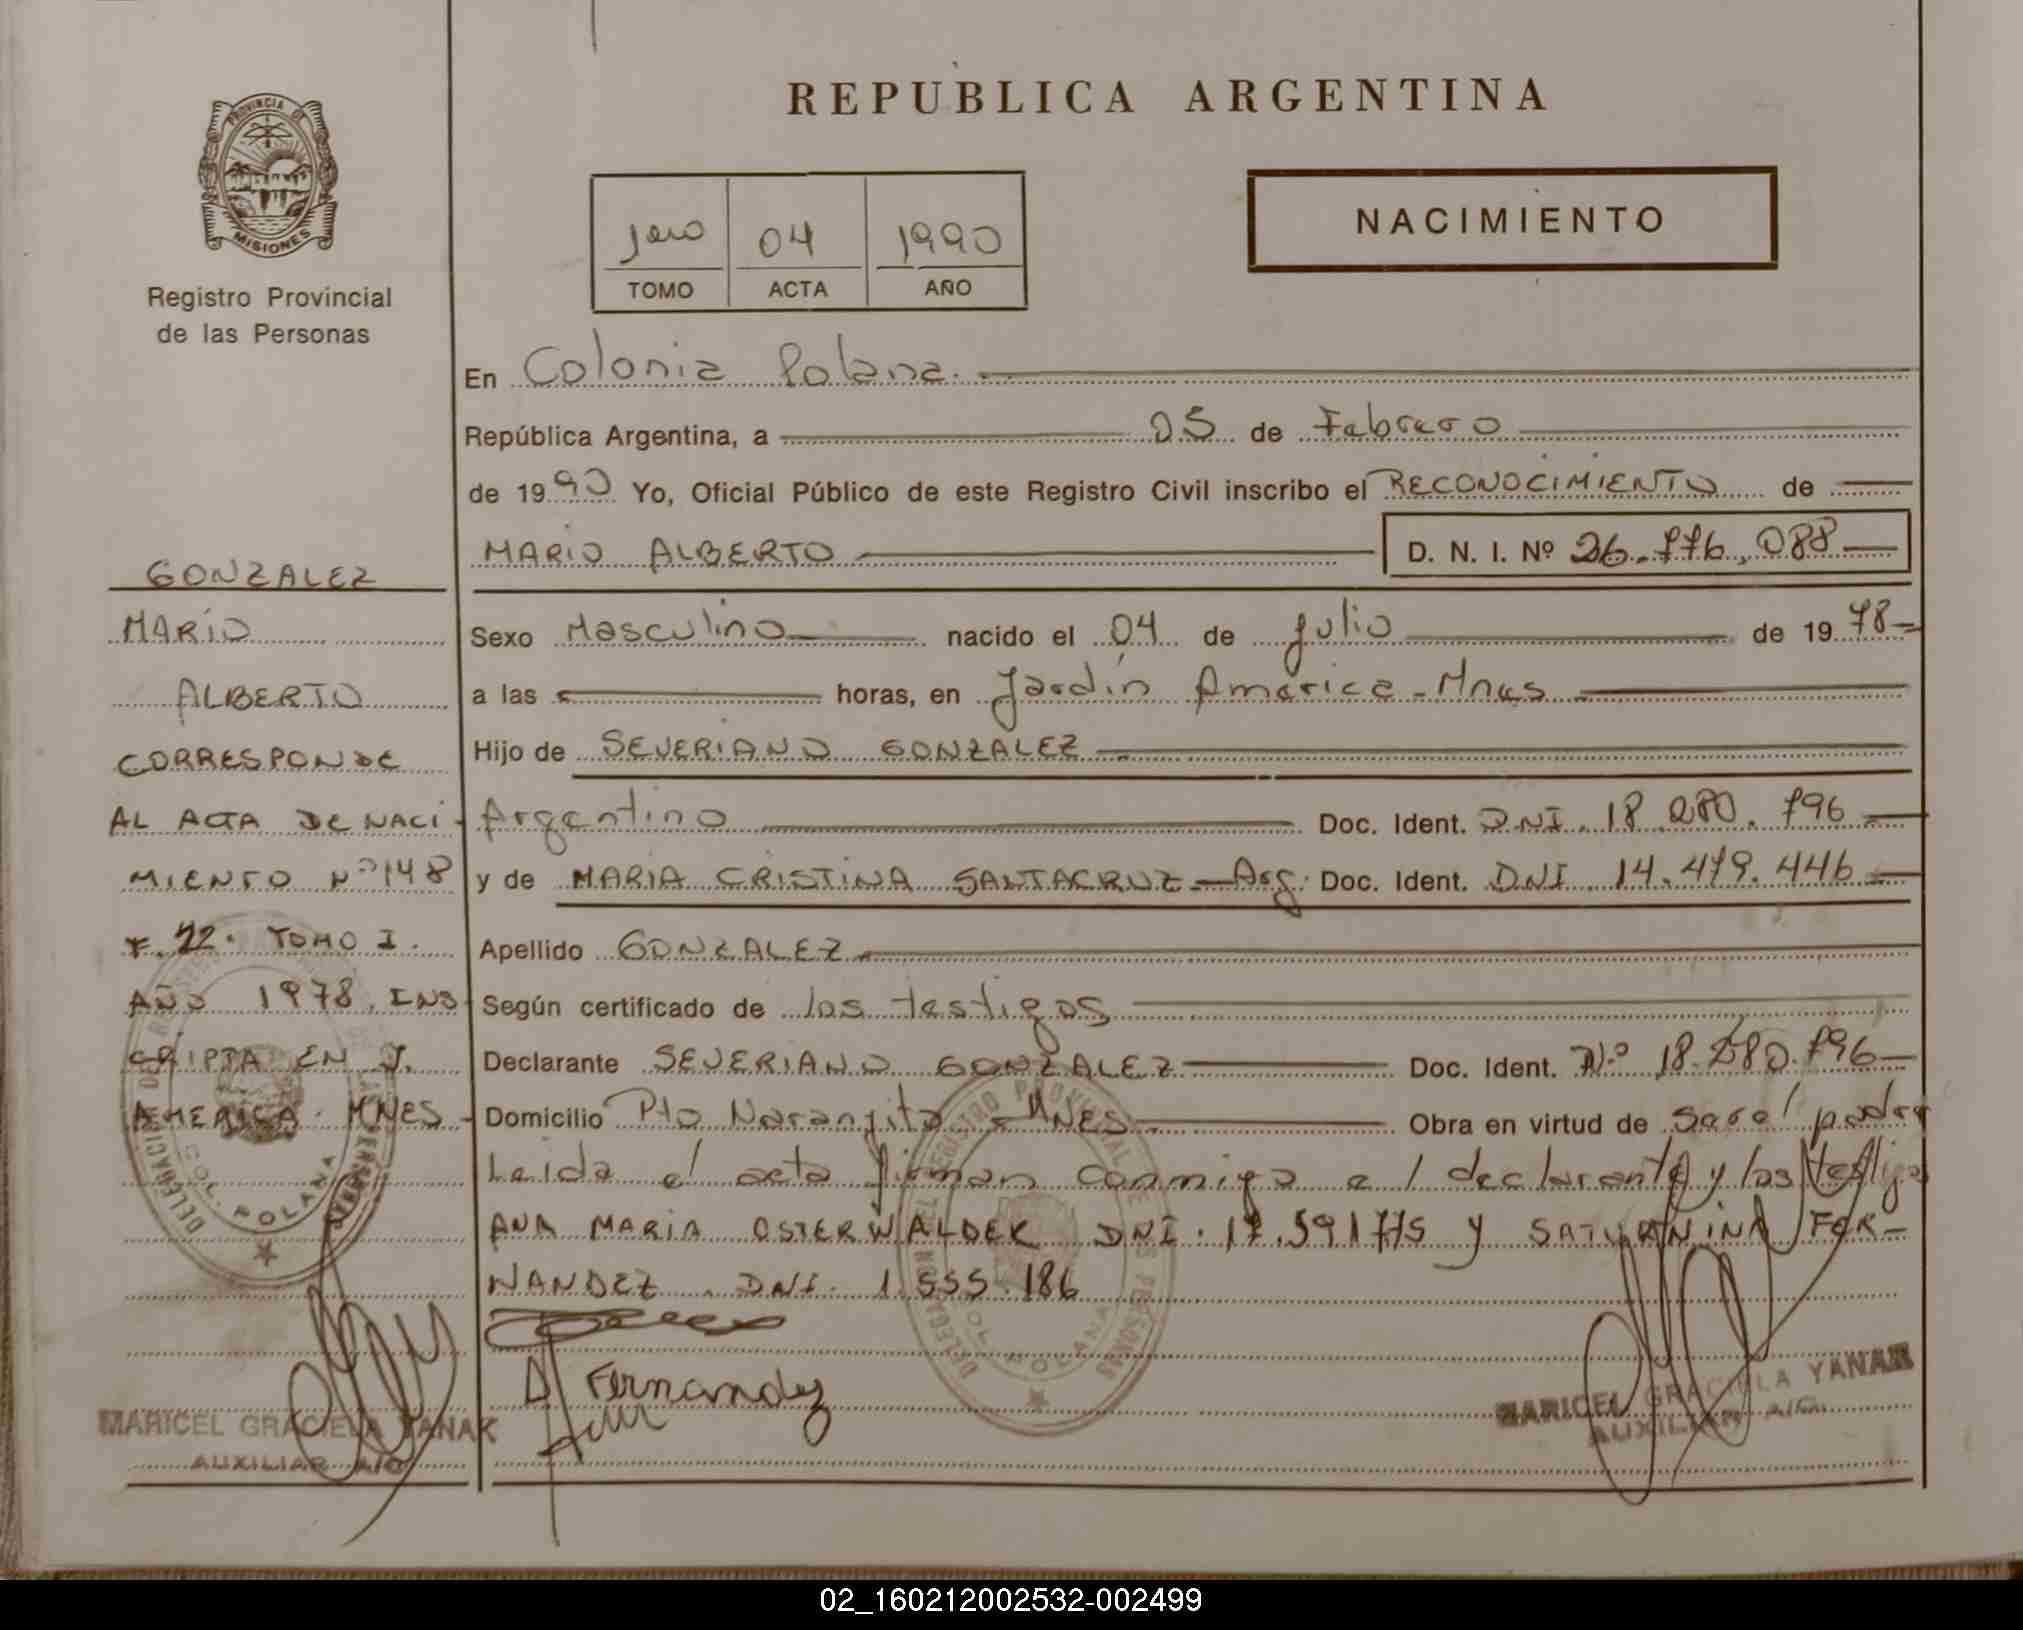 REPUBLICA ARGENTINA
PROVINCIA DE
MISIONES
Registro Provincial
de las Personas
1ero 04 1990
TOMO ACTA AÑO
NACIMIENTO
En Colonia Polana.
República Argentina, a 05 de Febrero
de 1990 Yo, Oficial Público de este Registro Civil inscribo el RECONOCIMIENTO de
MARIO ALBERTO D. N. I. Nº 26.776.088
Sexo Masculino nacido el 04 de Julio de 1978
a las horas, en Jardín America - Mnes
Hijo de SEVERIANO GONZALEZ
Argentino Doc. Ident. DNI. 18.280.796
y de MARIA CRISTINA SANTACRUZ - Arg. Doc. Ident. DNI 14.479.446
Apellido GONZALEZ
Según certificado de los testigos
Declarante SEVERIANO GONZALEZ Doc. Ident. Nº 18.280.796
Domicilio Pto Naranjito - MNES Obra en virtud de ser el padre
Leida el acta firman conmigo el declarante y los testigos
ANA MARIA OSTERWALDER DNI. 17.591775 y SATURNINA FER-
NANDEZ. DNI. 1.555.186
GONZALEZ
MARIO
ALBERTO
CORRESPONDE
AL ACTA DE NACI-
MIENTO Nº 148
F. 22. TOMO I.
AÑO 1978. INS-
CRIPTA EN J.
AMERICA. MNES-
DELEGACION COL. POLANA
DELEGACION DEL REGISTRO PROVINCIAL DE LAS PERSONAS
COL. POLANA
Fernandez
MARICEL GRACIELA YANAK
AUXILIAR A/C
MARICEL GRACIELA YANAK
AUXILIAR A/C
02_160212002532-002499